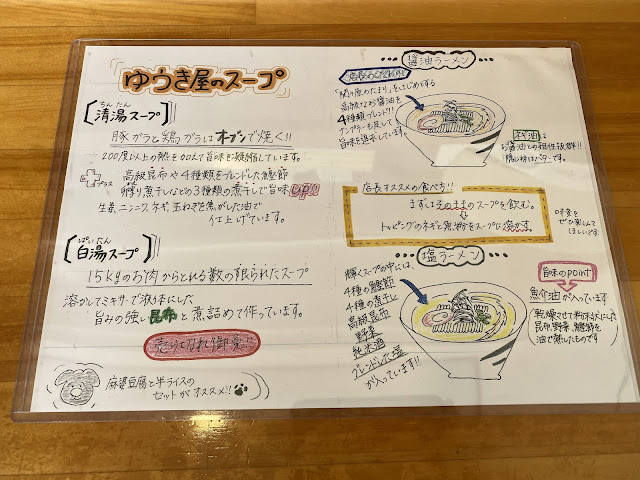 ゆうき屋のスープ
ちんたん
清湯スープ
豚ガラと鶏ガラはオーブンで焼く!!
200度以上の熱を加えて旨味を凝縮しています。
プラス
高級昆布や4種類をブレンドした鰹節
鯵り煮干しなどの3種類の煮干しで旨味up!!
生姜、ニンニク、ネギ、玉ねぎを焦がした油で
仕上げています。
ぱいたん
白湯スープ
15kgのお肉からとれる数の限られたスープ
溶かしてミキサーで液体にした
旨みの強い昆布と煮詰めて作っています。
売り切れ御免!!
麻婆豆腐と半ライスの
セットがオススメ!!
醤油ラーメン
「関ヶ原のたまり」をはじめとする
高級なお醤油を
4種類ブレンド!!
旨味を逃しています。
お醤油との相性抜群!!
隠し味はバターです。
店長オススメの食べ方!!
まずはそのままのスープを飲む。
トッピングのネギと魚粉をスープに溶かす
味変を
ぜひ楽しんで
ほしいです
塩ラーメン
輝くスープの中には、
4種の鰹節
4種の煮干し
高級昆布
野菜
純米酒
ブレンドした塩
が入っています!!
旨味のPOINT
魚介油が入っています
乾燥させて粉末状にした
昆布、野菜、鰹節を
油で熱したものです